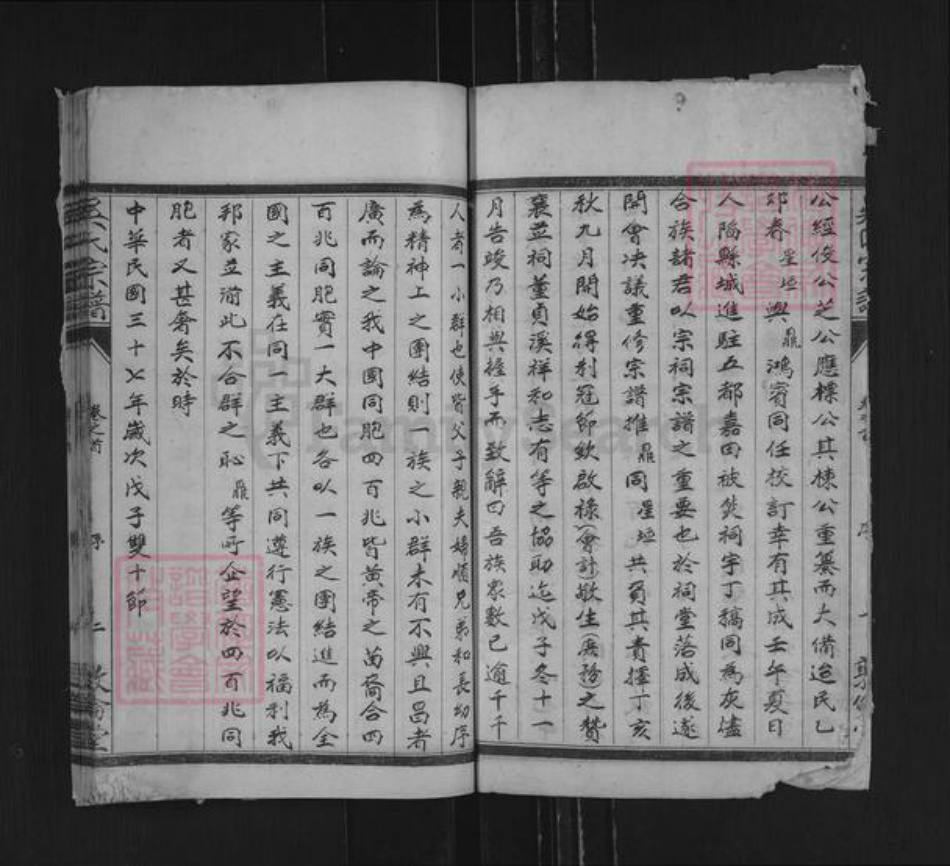 公經俊公芝公應標公其棟公重纂而大備迨民乙
卯春星垣與鼎鴻賓同任校訂幸有其成壬午夏日
人陷縣城進駐五都嘉田被焚祠宇丁稿同為灰燼
合族諸君以宗祠宗譜之重要也於祠堂落成後遂
開會決議重修宗譜推鼎同星垣共負其責擇丁亥
秋九月開始得利冠節欽啟祿(會計)敬生(庶務)之贊
襄並祠董貞溪祥和志有等之協助迄戊子冬十一
月告竣乃相與握手而致辭曰吾族眾數已逾千千
人者一小群也使皆父子親夫婦順兄弟和長幼序
為精神上之團結則一族之小群未有不興且昌者
廣而論之我中國同胞四百兆皆黃帝之苗裔合四
百兆同胞實一大群也各以一族之團結進而為全
國之主義在同一主義下共同遵行憲法以福利我
邦家並湔此不合群之恥鼎等所企望於四百兆同
胞者又甚奢矣於時
中華民國三十七年歲次戊子雙十節
吳氏宗譜
卷之首
序
二
敦倫堂